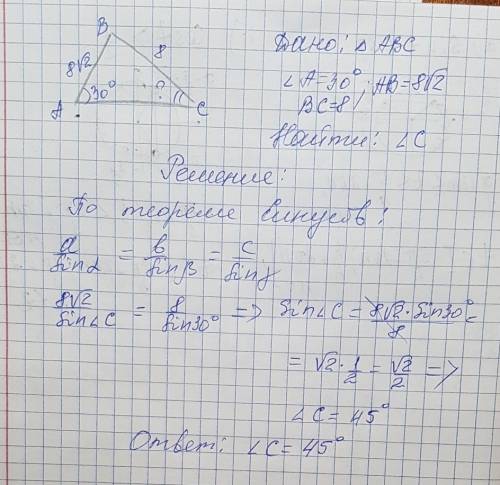 B
8√2
8
A 30° ? C
Дано: △ABC
∠A=30°; AB=8√2
BC=8
Найти: ∠C
Решение:
По теореме Синусов:
a/sinα = в/sinβ = c/sinγ
8√2/sin∠C = 8/sin30° => sin∠C = 8√2·sin30°/8 =
= √2·1/2 = √2/2 =>
∠C = 45°
Ответ: ∠C = 45°